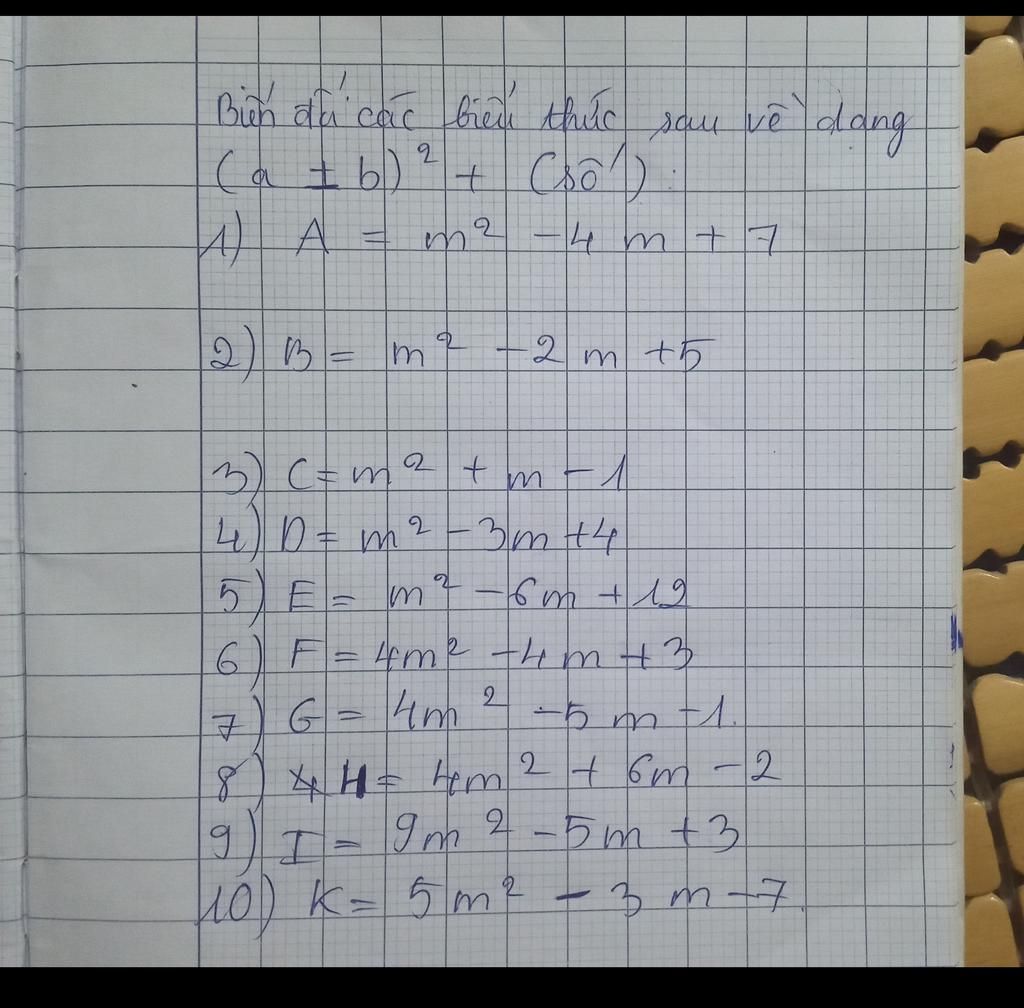 Biến đổi các biểu thức sau về dạng
(a ± b)² + (số) :
1) A = m² - 4 m + 7
2) B = m² - 2 m + 5
3) C = m² + m - 1
4) D = m² - 3m + 4
5) E = m² - 6m + 12
6) F = 4m² - 4m + 3
7) G = 4m² - 5 m - 1.
8) H = 4m² + 6m - 2
9) I = 9m² - 5m + 3
10) K = 5m² - 3 m - 7.